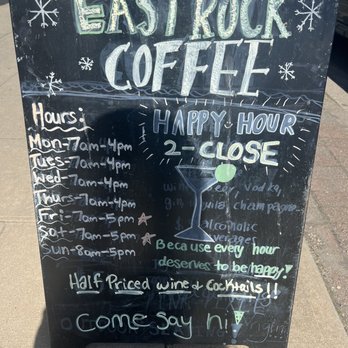 EAST ROCK
COFFEE
Hours:
Mon-7am-4pm
Tues-7am-4pm
Wed-7am-4pm
Thurs-7am-4pm
Fri-7am-5pm
Sat-7am-5pm
Sun-8am-5pm
HAPPY HOUR
2-CLOSE
Because every hour
deserves to be happy!
Half Priced wine & Cocktails!!
Come say hi!